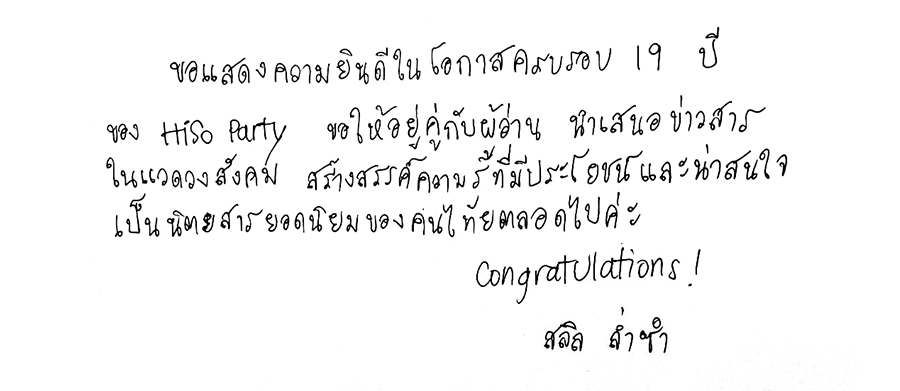 ขอแสดงความยินดีในโอกาสครบรอบ 19 ปี
ของ HiSo Party ขอให้อยู่คู่กับผู้อ่าน นำเสนอข่าวสาร
ในแวดวงสังคม สร้างสรรค์ความรู้ที่มีประโยชน์และน่าสนใจ
เป็นนิตยสารยอดนิยมของคนไทยตลอดไปค่ะ
Congratulations!
สลิล ล่ำซำ